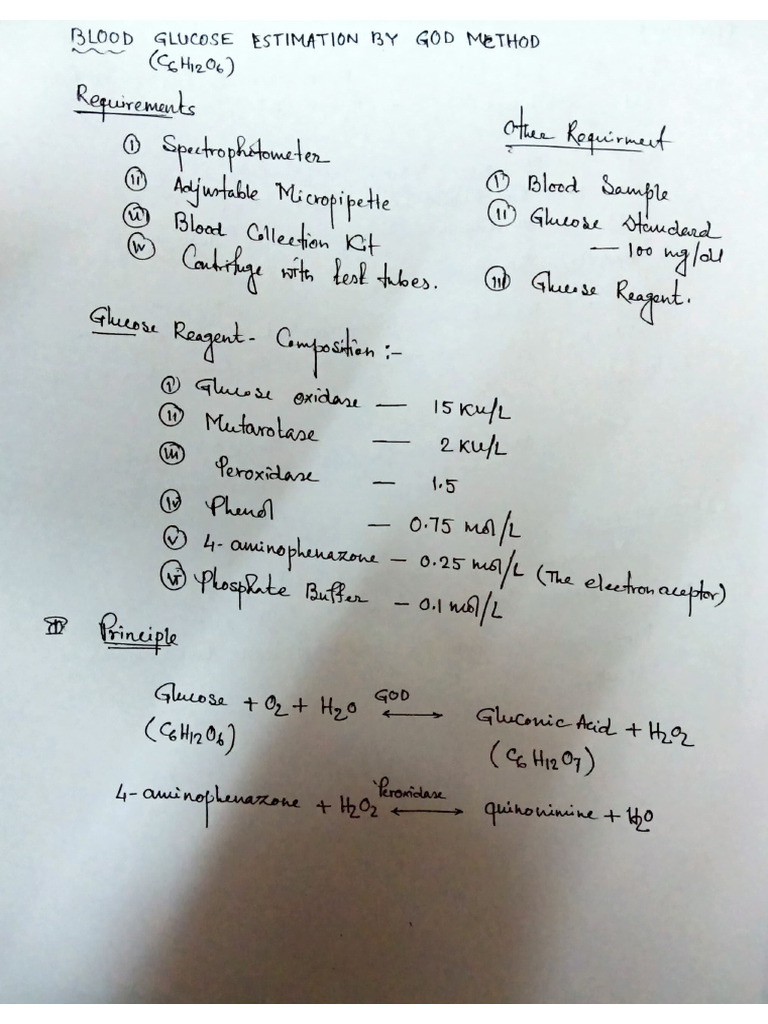 BLOOD GLUCOSE ESTIMATION BY GOD METHOD
(C6H12O6)
Requirements
(i) Spectrophotometer
(ii) Adjustable Micropipette
(iii) Blood Collection Kit
(iv) Centrifuge with test tubes.
Other Requirment
(i) Blood Sample
(ii) Glucose Standard
— 100 mg/dl
(iii) Glucose Reagent.
Glucose Reagent - Composition :-
(i) Glucose oxidase — 15 KU/L
(ii) Mutarotase — 2 KU/L
(iii) Peroxidase — 1.5
(iv) Phenol — 0.75 mol/L
(v) 4-aminophenazone — 0.25 mol/L (The electron aceptor)
(vi) Phosphate Buffer — 0.1 mol/L
II Principle
Glucose + O2 + H2O GOD ⟷ Gluconic Acid + H2O2
(C6H12O6) (C6H12O7)
4-aminophenazone + H2O2 Peroxidase ⟷ quinonimine + H2O